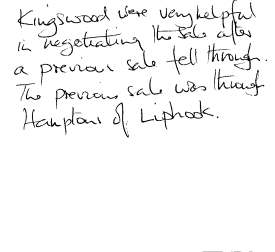 Kingswood were very helpful
in negotiating the sale after
a previous sale fell through.
The previous sale was through
Hamptons of Liphook.